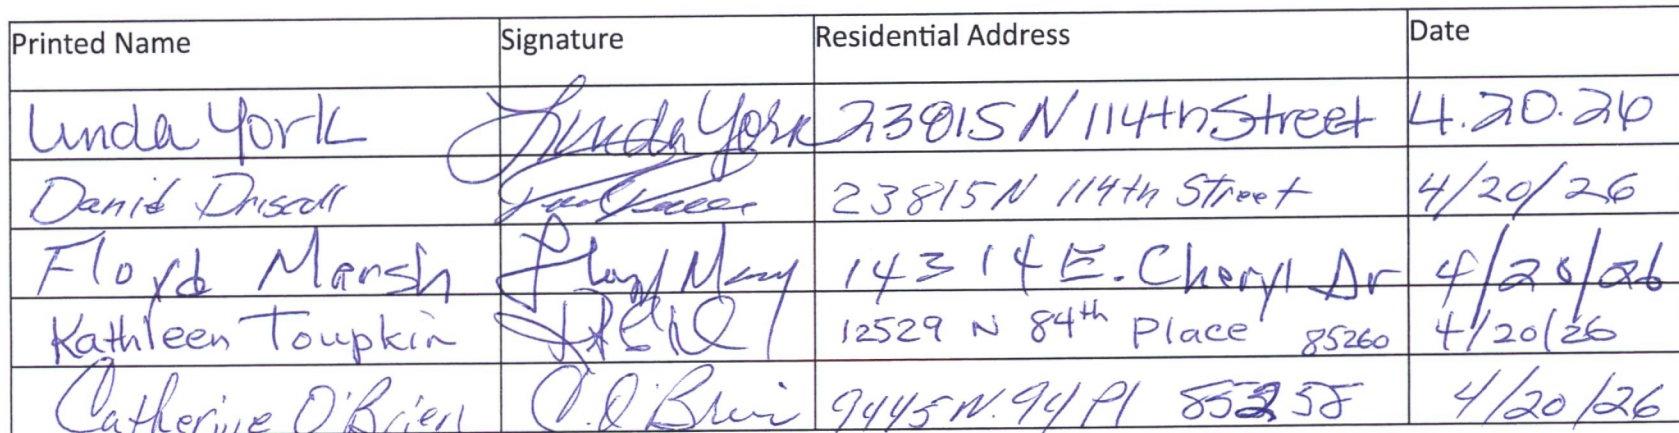 Printed Name Signature Residential Address Date
Linda York Linda York 23815 N 114th Street 4.20.26
David Driscoll 23815 N 114th Street 4/20/26
Floyd Marsh Floyd Marsh 14314 E. Cheryl Dr 4/20/26
Kathleen Toupkin 12529 N 84th Place 85260 4/20/26
Catherine O'Brien C. O'Brien 9445 N. 94 Pl 85258 4/20/26